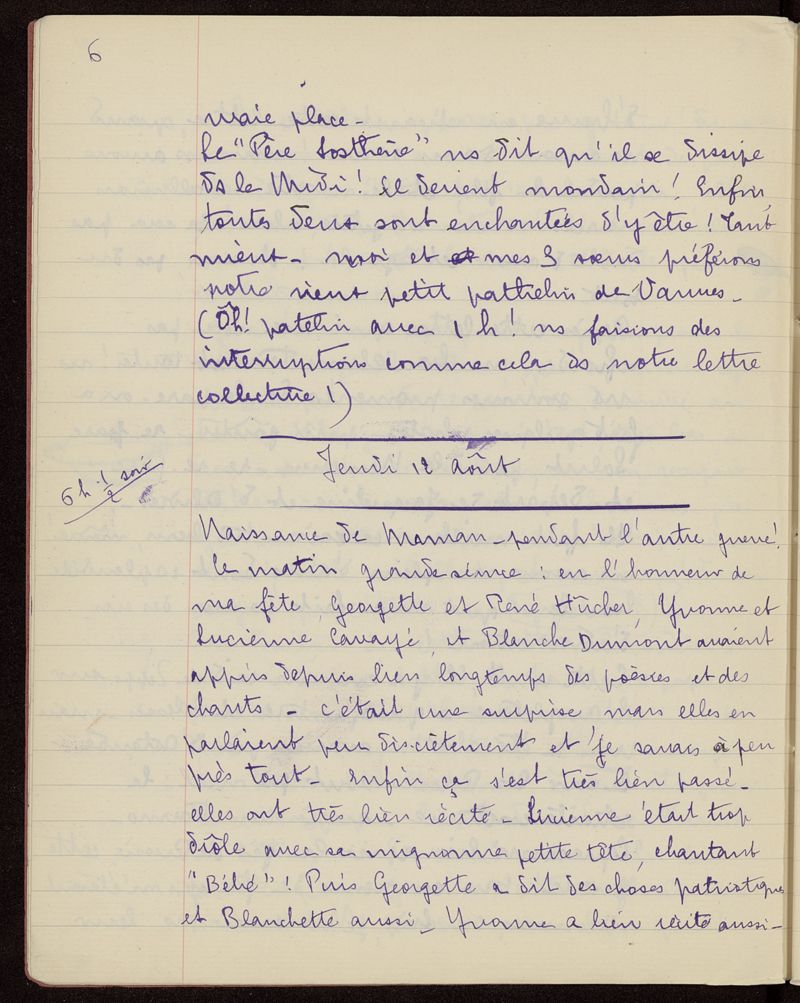 6
vraie place -
Le "Père Sosthène" ns dit qu'il se dissipe
ds le Midi ! Il devient mondain ! Enfin,
toutes deux sont enchantées d'y être ! Tant
mieux - moi et mes 3 sœurs préférons
notre vieux petit patthelin de Vannes -
(Ôh ! patelin avec 1 h ! ns faisions des
interruptions comme cela ds notre lettre
collective !)
Jeudi 12 Août
6 h 1/2 soir
Naissance de Maman - pendant l'autre guerre !
Le matin grande séance : en l'honneur de
ma fête, Georgette et René Hücher, Yvonne et
Lucienne Cavayé, et Blanche Dumont avaient
appris depuis bien longtemps des poësies et des
chants - c'était une surprise mais elles en
parlaient peu discrètement et je savais à peu
près tout - Enfin ça s'est très bien passé -
elles ont très bien récité - Lucienne était trop
drôle avec sa mignonne petite tête, chantant
"Bébé" ! Puis Georgette a dit des choses patriotiques
et Blanchette aussi - Yvonne a bien récité aussi -